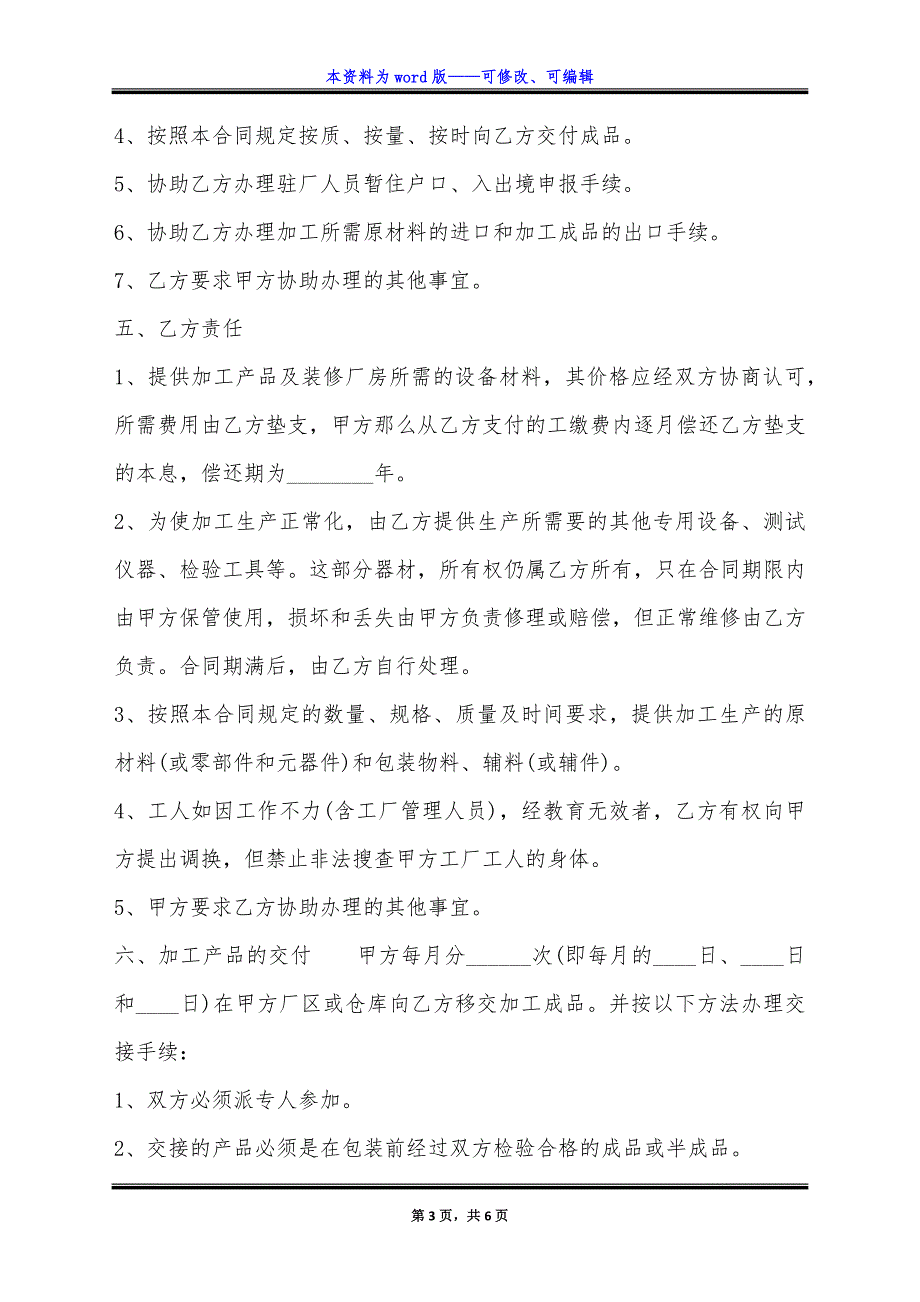 本资料为 word 版——可修改、可编辑
4、按照本合同规定按质、按量、按时向乙方交付成品。
5、协助乙方办理驻厂人员暂住户口、入出境申报手续。
6、协助乙方办理加工所需原材料的进口和加工成品的出口手续。
7、乙方要求甲方协助办理的其他事宜。
五、乙方责任
1、提供加工产品及装修厂房所需的设备材料，其价格应经双方协商认可，
所需费用由乙方垫支，甲方那么从乙方支付的工缴费内逐月偿还乙方垫支
的本息，偿还期为________年。
2、为使加工生产正常化，由乙方提供生产所需要的其他专用设备、测试
仪器、检验工具等。这部分器材，所有权仍属乙方所有，只在合同期限内
由甲方保管使用，损坏和丢失由甲方负责修理或赔偿，但正常维修由乙方
负责。合同期满后，由乙方自行处理。
3、按照本合同规定的数量、规格、质量及时间要求，提供加工生产的原
材料(或零部件和元器件)和包装物料、辅料(或辅件)。
4、工人如因工作不力(含工厂管理人员)，经教育无效者，乙方有权向甲
方提出调换，但禁止非法搜查甲方工厂工人的身体。
5、甲方要求乙方协助办理的其他事宜。
六、加工产品的交付　　甲方每月分______次(即每月的____日、____日
和____日)在甲方厂区或仓库向乙方移交加工成品。并按以下方法办理交
接手续：
1、双方必须派专人参加。
2、交接的产品必须是在包装前经过双方检验合格的成品或半成品。
第 3 页，共 6 页